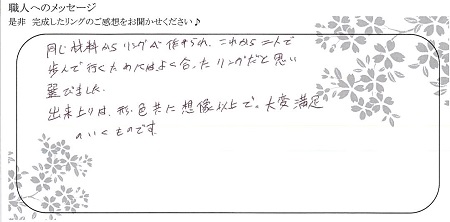 職人へのメッセージ
是非 完成したリングのご感想をお聞かせください♪
同じ材料からリングが作られ、これから二人で
歩んで行くためにはよく合ったリングだと思い
選びました。
出来上りは、形・色共に想像以上で。大変満足
のいくものです。